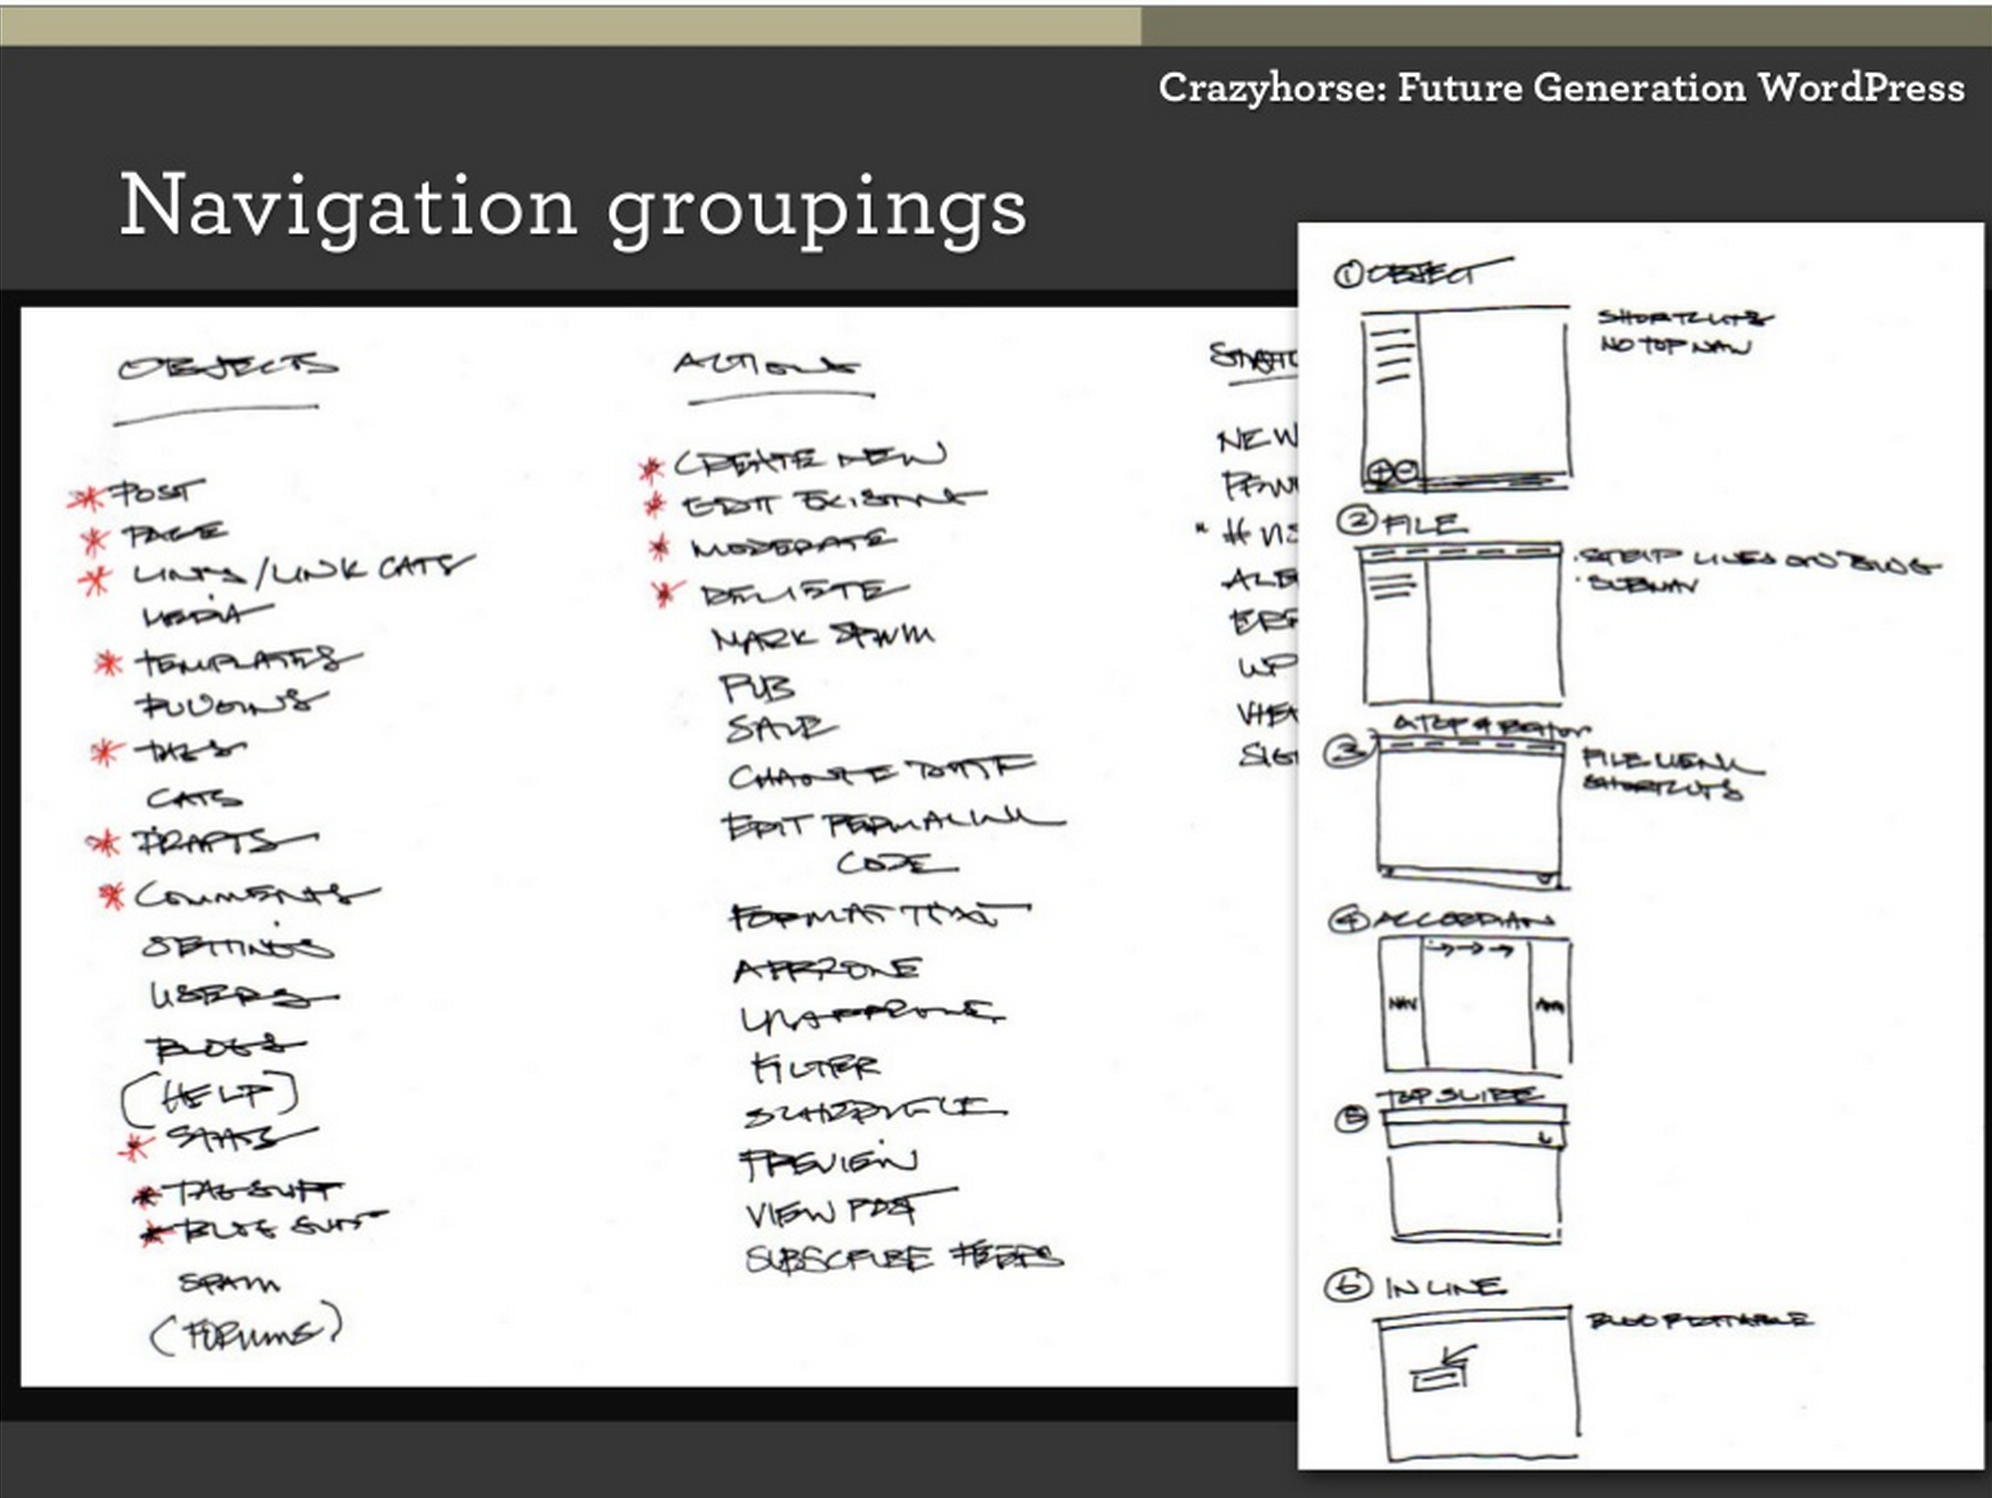 Crazyhorse: Future Generation WordPress
Navigation groupings
OBJECTS
POST
PAGE
LINKS/LINK CATS
MEDIA
TEMPLATES
PLUGINS
TAGS
CATS
DRAFTS
COMMENTS
SETTINGS
USERS
BLOGS
(HELP)
STATS
TAG SURF
BLOG SURF
SPAM
(FORUMS)
ACTIONS
CREATE NEW
EDIT EXISTING
MODERATE
DELETE
MARK SPAM
PUB
SAVE
CHANGE DATE
EDIT PERMALINK
CODE
FORMAT TEXT
APPROVE
UNAPPROVE
FILTER
SCHEDULE
PREVIEW
VIEW POST
SUBSCRIBE FEEDS
NEW
# NE
ALE
ERR
WP
VIEW
① OBJECT
SHORTCUTS
NO TOP NAV
② FILE
SUBNAV
③ TOP & BOTTOM
FILE MENU
SHORTCUTS
④ ACCORDIAN
NAV
⑤ TOP SLIDE
⑥ INLINE